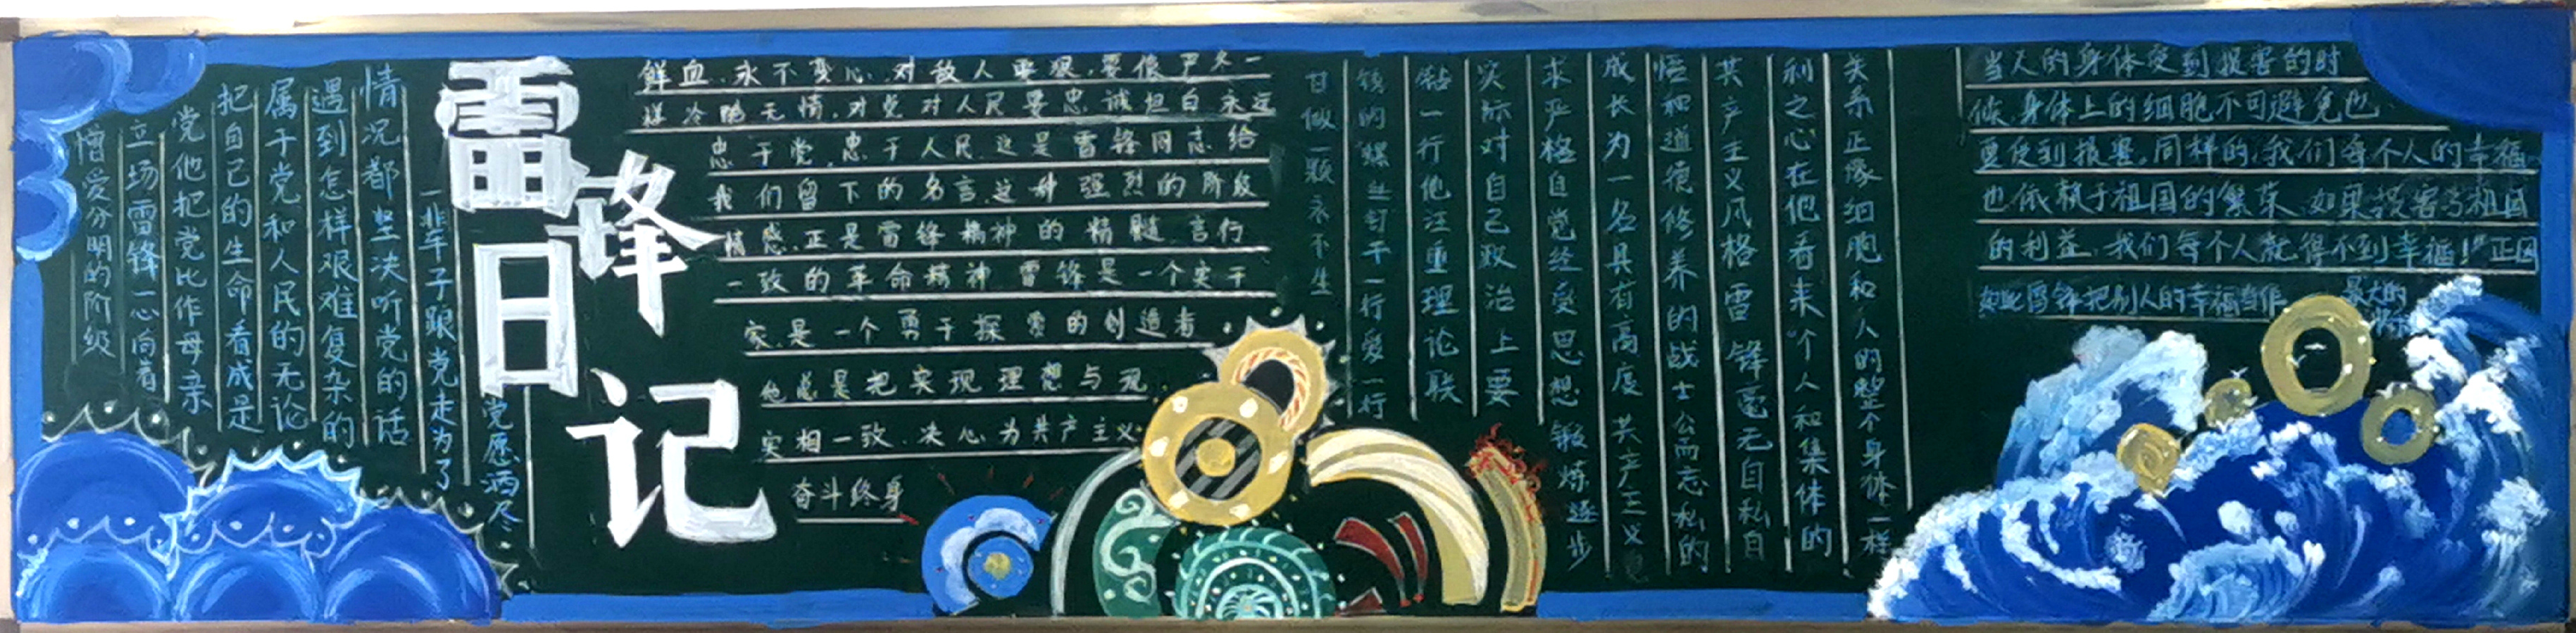 雷锋日记
憎爱分明的阶级
立场雷锋一心向着
党他把党比作母亲
把自己的生命看成是
属于党和人民的无论
遇到怎样艰难复杂的
情况都坚决听党的话
一辈子跟党走为了
党愿洒尽
鲜血、永不变心、对敌人要狠，要像严冬一
样冷酷无情，对党对人民要忠诚坦白永远
忠于党，忠于人民.这是雷锋同志给
我们留下的名言.这种强烈的阶级
情感.正是雷锋精神的精髓.言行
一致的革命精神 雷锋是一个实干
家.是一个勇于探索的创造者
他总是把实现理想与现
实相一致.决心为共产主义
奋斗终身
甘做一颗永不生
锈的螺丝钉干一行爱一行
钻一行他注重理论联
实际对自己政治上要
求严格自觉经受思想锻炼逐步
成长为一名具有高度共产主义觉
悟和道德修养的战士公而忘私的
共产主义风格雷锋毫无自私自
利之心在他看来“个人和集体的
关系正像细胞和人的整个身体一样
当人的身体受到损害的时
候.身体上的细胞不可避免也
要受到损害.同样的.我们每个人的幸福
也依赖于祖国的繁荣.如果损害了祖国
的利益.我们每个人就得不到幸福！”正因
如此雷锋把别人的幸福当作
最大的